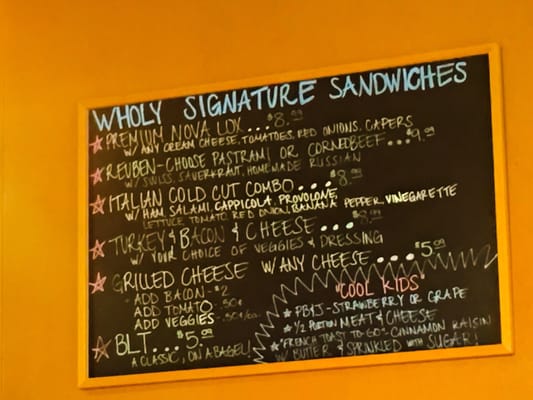 WHOLY SIGNATURE SANDWICHES
PREMIUM NOVA LOX... $8.99
W/ ANY CREAM CHEESE, TOMATOES, RED ONIONS, CAPERS
REUBEN-CHOOSE PASTRAMI OR CORNEDBEEF...9.99
W/ SWISS, SAUERKRAUT, HOMEMADE RUSSIAN
ITALIAN COLD CUT COMBO... $8.99
W/ HAM, SALAMI, CAPPICOLA, PROVOLONE,
LETTUCE TOMATO, RED ONION, BANANA PEPPER, VINEGARETTE
TURKEY & BACON & CHEESE...
W/ YOUR CHOICE OF VEGGIES & DRESSING
GRILLED CHEESE W/ ANY CHEESE... $5.00
ADD BACON - $2
ADD TOMATO - 50¢
ADD VEGGIES - 50¢/ea.
BLT.... $5.00
A CLASSIC, ON A BAGEL!
"COOL KIDS"
PB&J-STRAWBERRY OR GRAPE
1/2 PORTION MEAT & CHEESE
"FRENCH TOAST TO GO": CINNAMON RAISIN
W/ BUTTER & SPRINKLED WITH SUGAR!